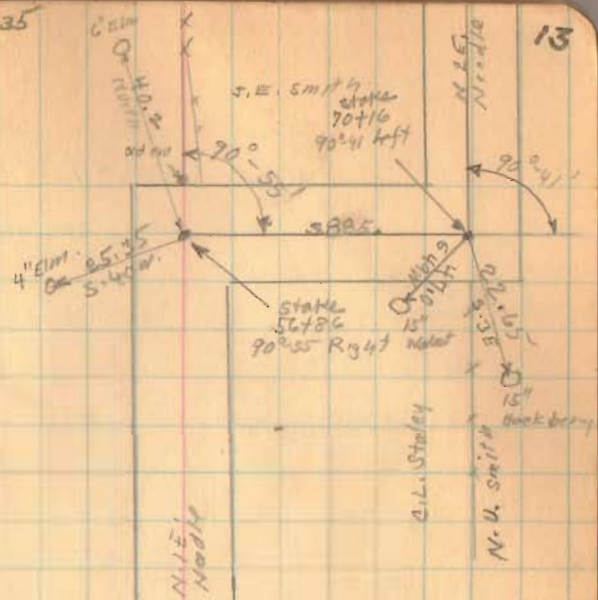 35
13
6" Elm
40.2
J.E. Smith
stake
70+16
90°-41 Left
N 1 E.
Needle
old
90°-55'
90°-41'
3885.
4" Elm.
25.25
S. 40 W.
Stake
56+86
90°-55 Right
15"
Walnut
15"
Hackberry
C.L. Staley
N.U. Smith
N.1E.
Needle